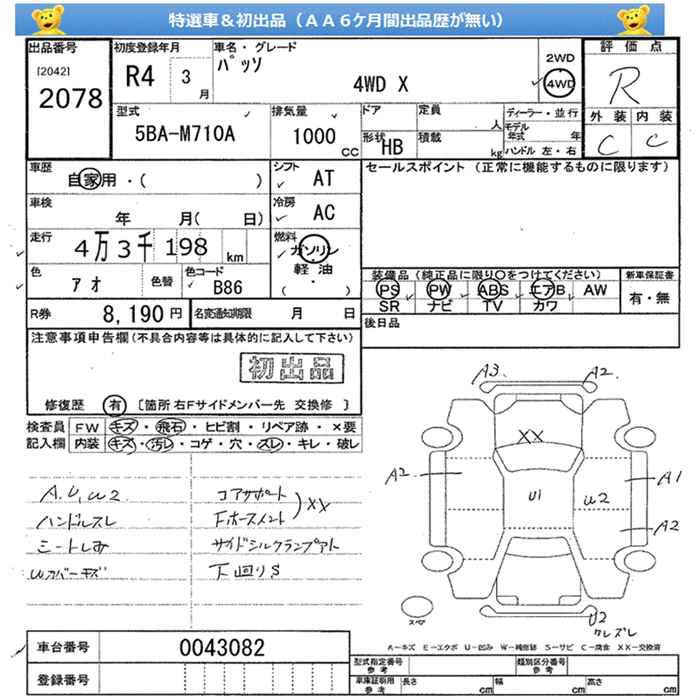 特選車＆初出品（ＡＡ６ケ月間出品歴が無い）
出品番号 初度登録年月 車名・グレード 評価点
[2042] パッソ 2WD
2078 R4 3月 4WD X 4WD R
型式 排気量 ドア 定員 人 ディーラー・並行 外装 内装
5BA-M710A 1000 CC 形状 HB 積載 kg モデル年式 年 C C
ハンドル 左・右
車歴 シフト セールスポイント（正常に機能するものに限ります）
自家用・( ) AT
車検 冷房
年 月( 日) AC
走行 4万3千198 km 燃料 ガソリン
軽油
( ・ )
色 アオ 色替 色コード B86
装備品（純正品に限り○をつけてください） 新車保証書
PS PW ABS エアB AW 有・無
SR ナビ TV カワ
R券 8,190円 名変通知期限 月 日
後日品
注意事項申告欄(不具合内容等は具体的に記入して下さい)
初出品
修復歴 有 〔箇所 右Fサイドメンバー先 交換修 〕
検査員 FW キズ・飛石・ヒビ割・リペア跡・×要
記入欄 内装 キズ・汚レ・コゲ・穴・スレ・キレ・破レ
A.U.W2 コアサポート
ハンドルスレ Fホースメント XX
シートしみ サイドシルクランプアト
Wカバーキズ 下回りS
A3 A2
XX
A2 U1 U2 A1
A2
スペア
U2
クレズレ
A―キズ E―エクボ U―凹み W―補修跡 S―サビ C―腐食 XX―交換済
車台番号 0043082
登録番号
型式指定番号 参考 類別区分番号 参考
車庫証明用 参考 長さ cm 幅 cm 高さ cm